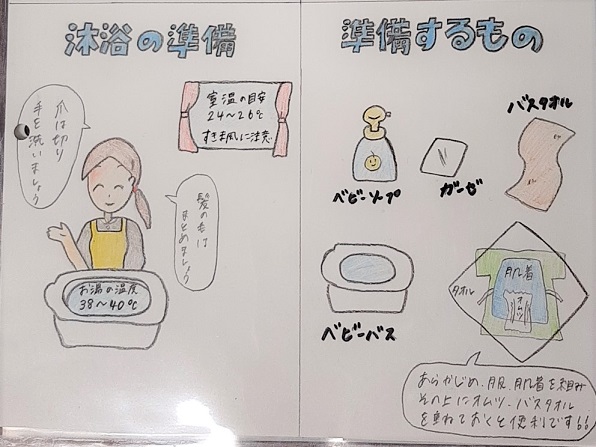 沐浴の準備
爪は切り
手を洗いましょう
室温の目安
24〜26℃
すきま風に注意
髪のもは
まとめましょう
お湯の温度
38〜40℃
準備するもの
ベビーソープ
ガーゼ
バスタオル
ベビーバス
タオル
肌着
オムツ
あらかじめ、服、肌着を組み
その上にオムツ、バスタオル
を重ねておくと便利です!!